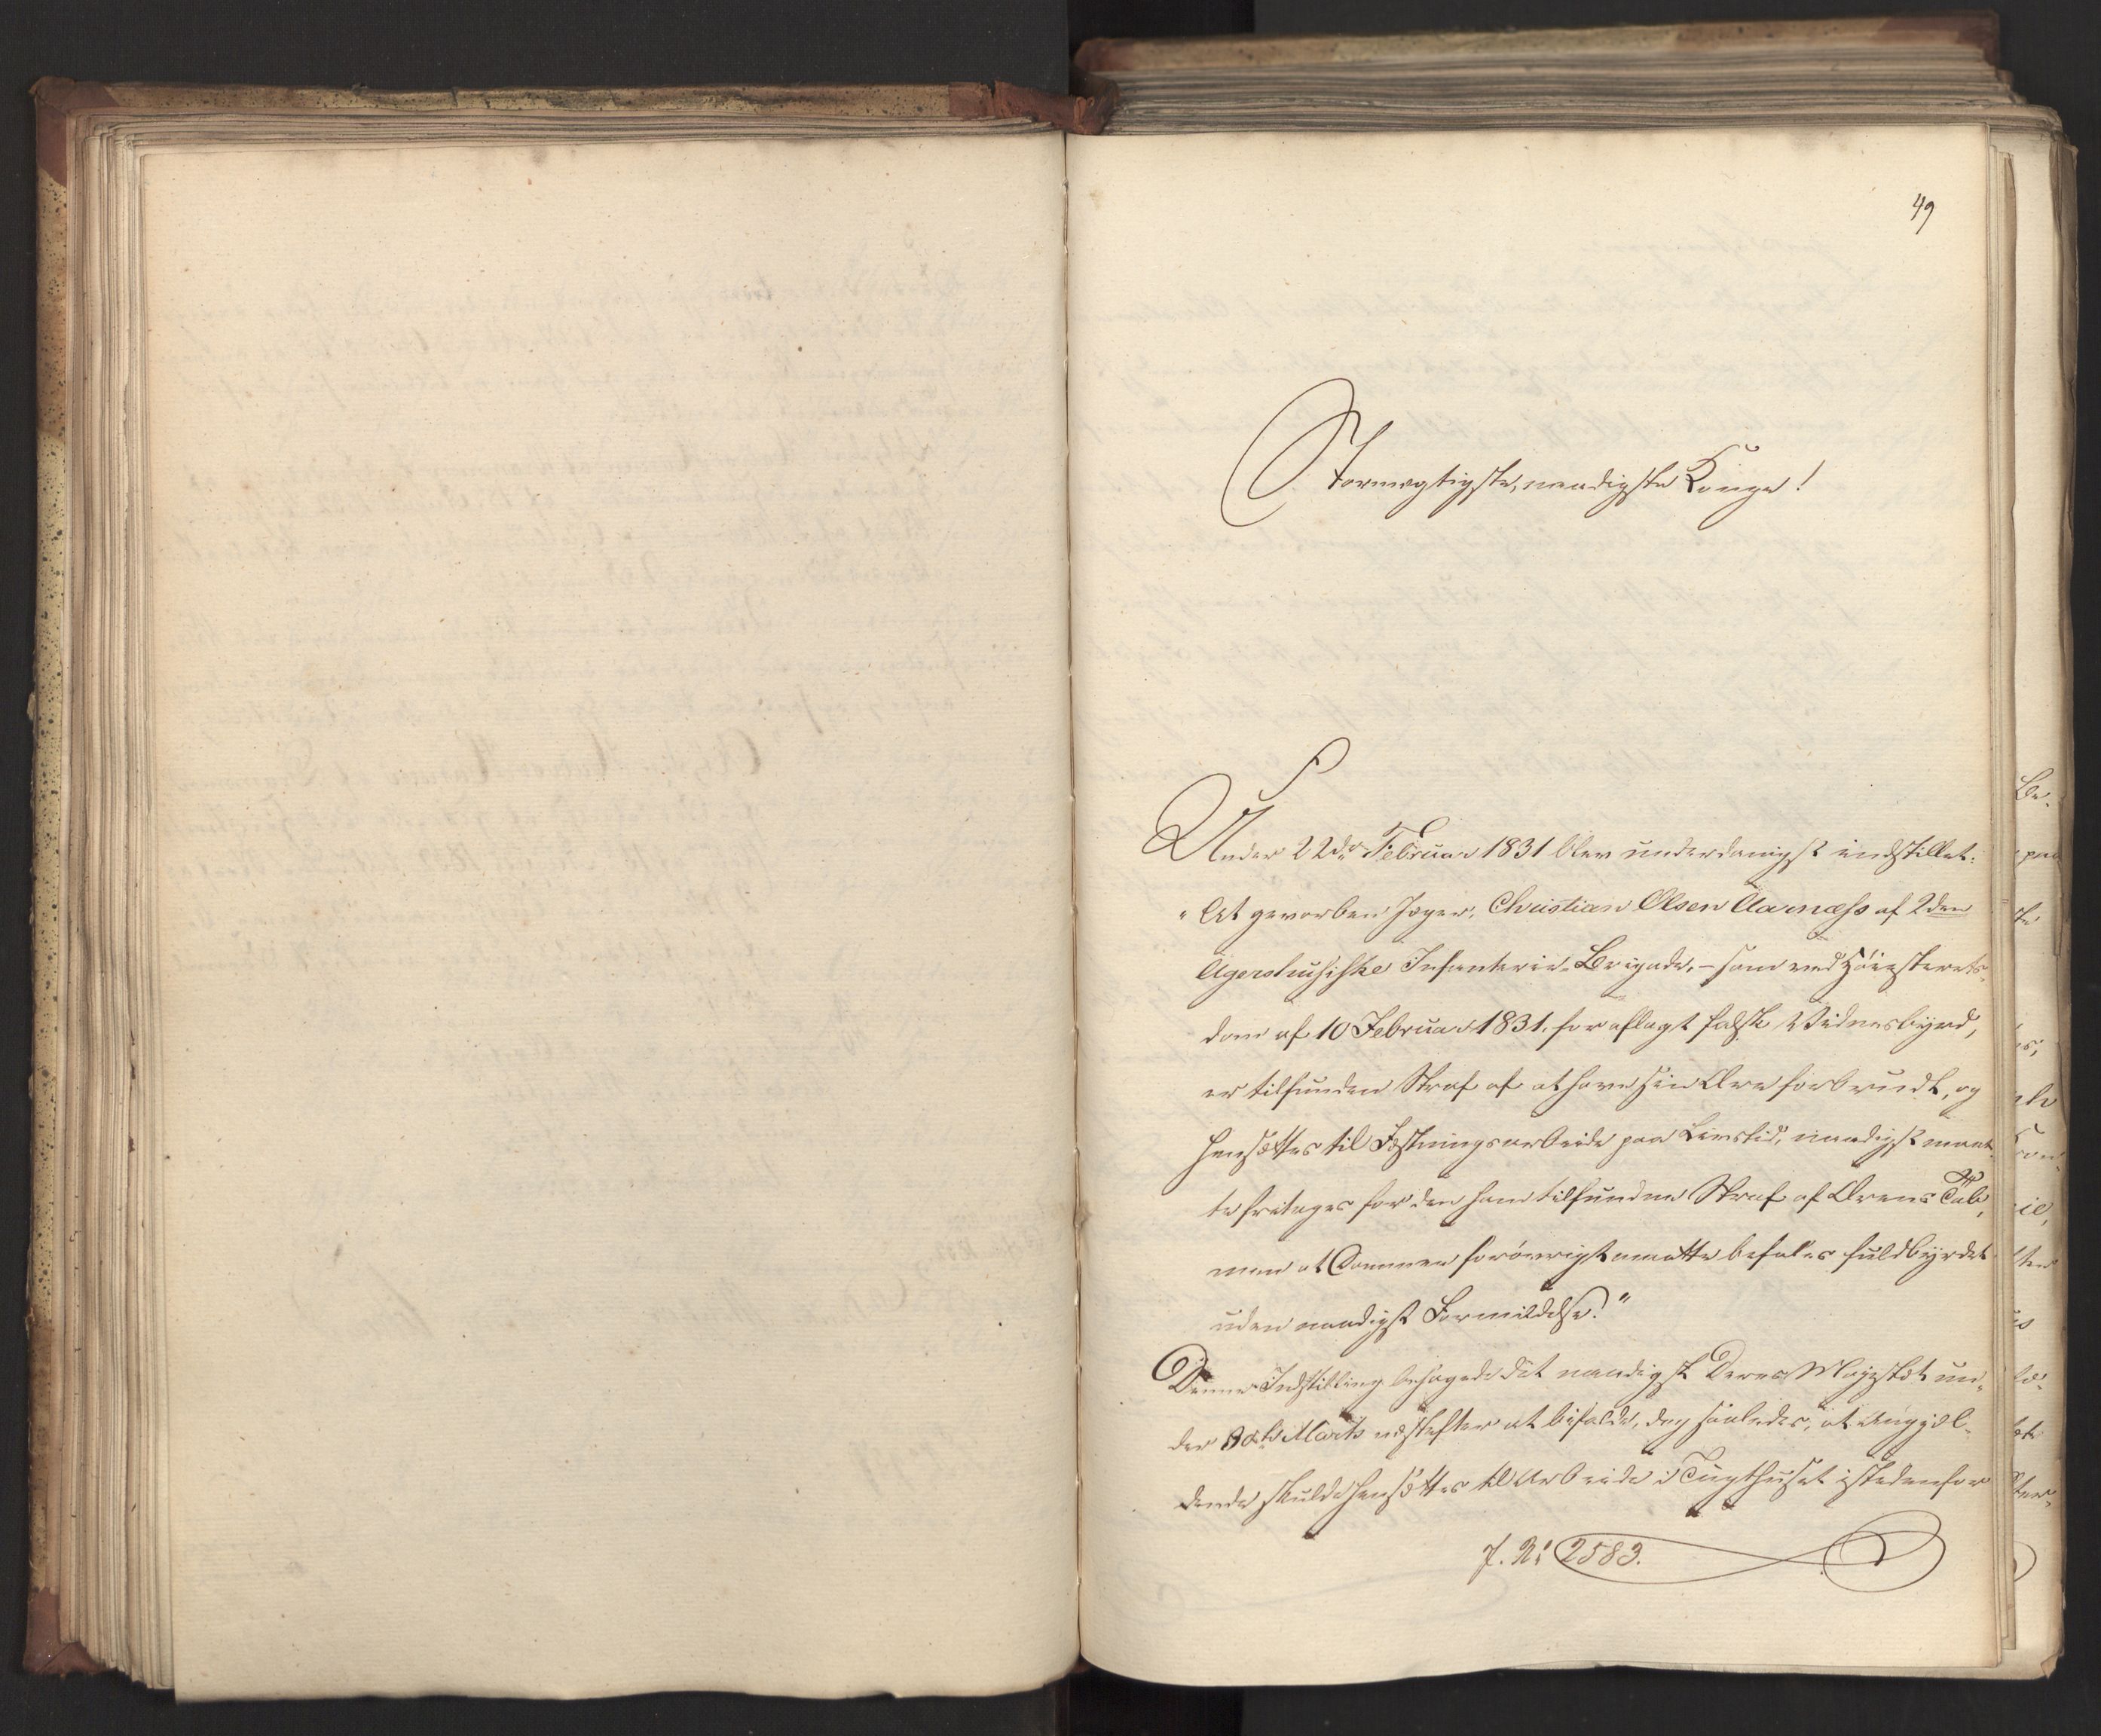 49
Stormægtigste, naadigste Konge!
Under 22de Februar 1831 blev underdanigst indstillet:
"At gevorben Jæger, Christian Olsen Aarnæss af 2den
Agershusiske Infanterie-Brigade, – som ved Høiesterets-
dom af 10 Februar 1831, for aflagt falsk Vidnesbyrd,
er tilfunden Straf af at have sin Ære forbrudt, og
hensættes til Fæstningsarbeide paa Livstid, naadigst maat-
te fritages for den ham tilfundne Straf af Ærens Tab,
men at Dommen forøvrigt maatte befales fuldbyrdet
uden naadigst Formildelse."
Denne Indstilling behagede det naadigst Deres Majestæt un-
der Marts næstefter at bifalde, dog saaledes, at Angjæl-
dende skulde hensættes til Arbeide i Tugthuset istedenfor
J. No 2583.